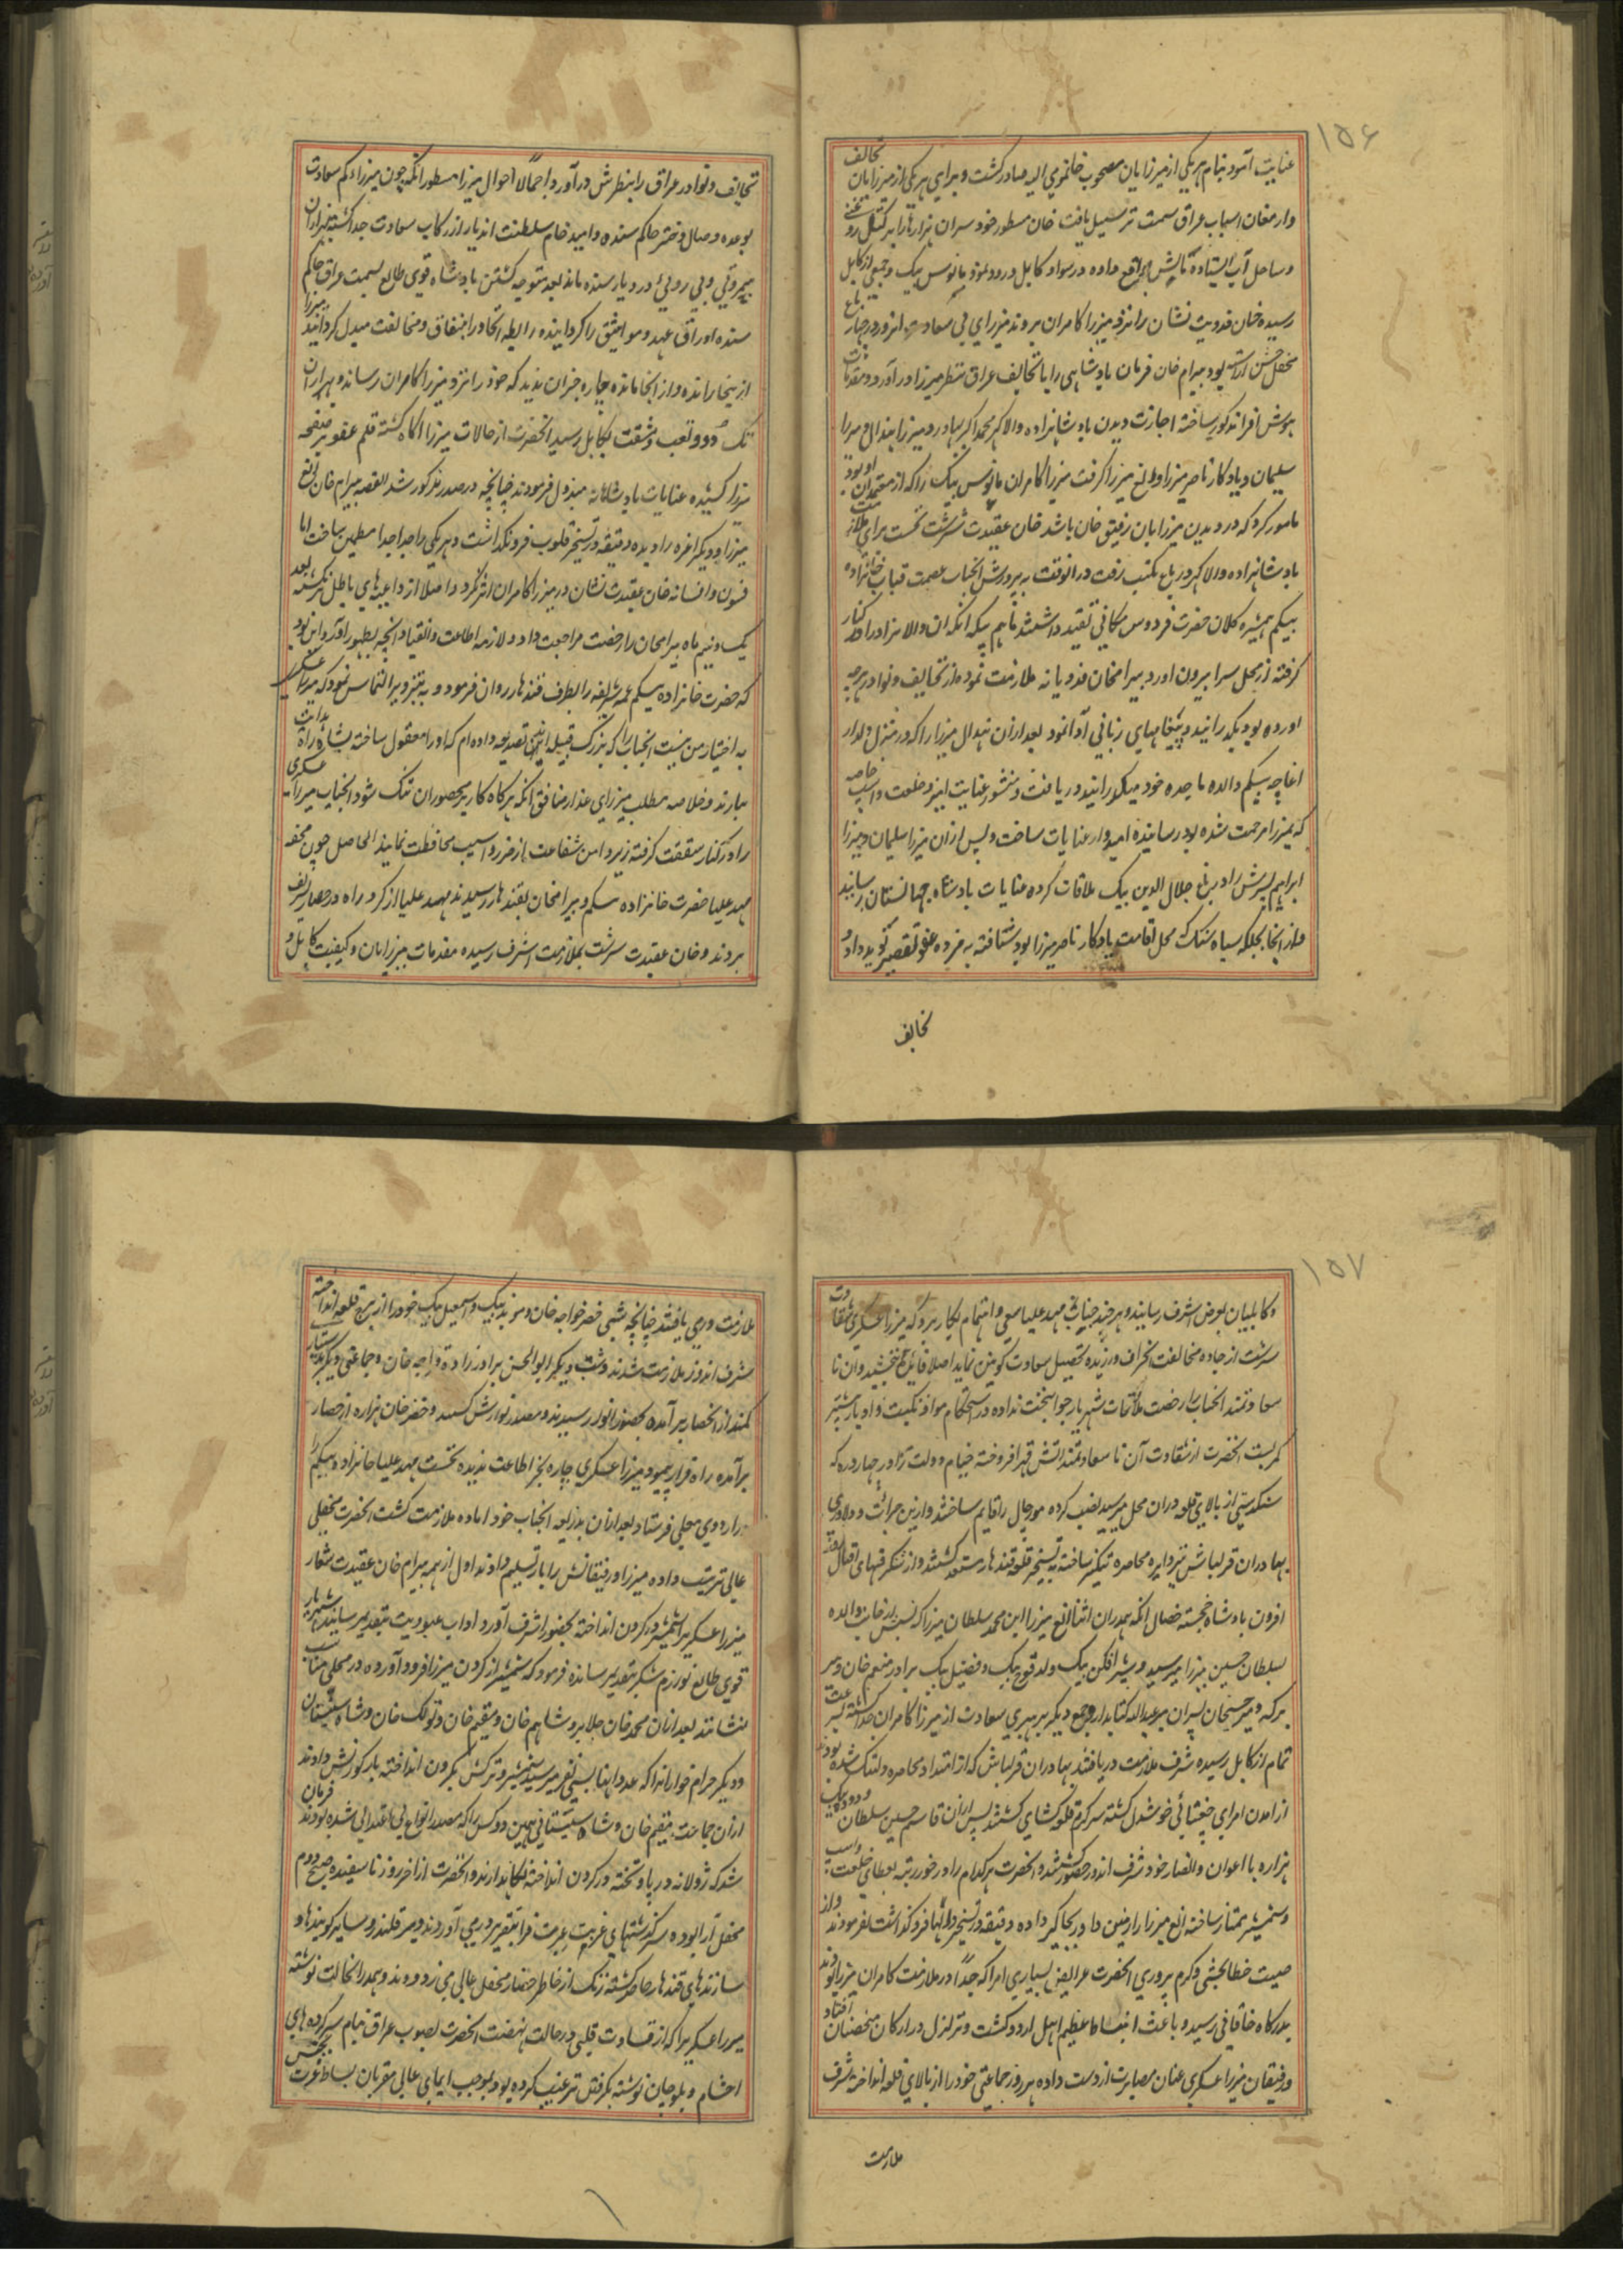 ۱۵۶
عنایت آمود بنام هر یکی از میرزایان مصحوب خان مومی الیه صادر کشت و برای هر یکی از میرزایان تحایف
وارمغان اسباب عراق سمت ترسیل یافت خان مسطور خود سران هزاره را بر کتل
وساحل آب ایستاده مالش داده در سواد کابل ورود نمود بابوس بیک و جمعی از کابل
رسیده خان فدویت نشان را نزد میرزا کامران بردند میرزای بی سعادت انروز در چهار باغ
محفل جشن آراسته بود بیرام خان فرمان بادشاهی را با تحایف عراق بنظر میرزا در آورد و مقدمات
هوش افزا مذکور ساخته اجازت دیدن بادشاهزاده والا کهر محمد اکبر بهادر و میرزا هندال و میرزا
سلیمان و یادکار ناصر میرزا و الغ میرزا کرفت میرزا کامران بابوس بیک را که از معتمدان او بود
مامور کرد که در دیدن میرزایان رفیق خان باشد خان عقیدت سرشت نخست برای ملازمت
بادشاهزاده والا کهر در باغ مکتب رفت در انوقت به پرورش انجناب عصمت قباب خانزاده
بیکم همشیره کلان حضرت فردوس مکانی تقید داشتند ماهم بیکه انکه ان والا نژاد را در کنار
کرفته از محل سرا بیرون اورد بیرامخان فدویانه ملازمت نموده از تحایف و نوادر هرچه
اورده بود بکذرانید و پیغامهای زبانی ادا نمود بعد ازان هندال میرزا را که در منزل دلدار
اغاچه بیکم والده ماجده خود میکذرانید دریافت و منشور عنایت امیز و خلعت و اسپ خاصه
که بمیرزا مرحمت شده بود رسانیده امیدوار عنایات ساخت و پس ازان میرزا سلیمان و میرزا
ابراهیم پسرش را در باغ جلال الدین بیک ملاقات کرده عنایات بادشاه جهانستان رسانید
و از انجا بجلکه سیاه سنک که محل اقامت یادکار ناصر میرزا بود شتافته به مژده عفو تقصیر نوید داد و
تحایف
تحایف و نوادر عراق را بنظرش در آورد و اجمالا احوال میرزا مسطور انکه چون میرزاء کم سعادت
بوعده وصال دختر حاکم سنده و امید خام سلطنت اندیار از رکاب سعادت جدا کشته هزاران
بیمروتی و بی روئی در دیار سنده ماند بعد متوجه کشتن بادشاه قوی طالع بسمت عراق حاکم
سنده اوراق عهد و مواثیق را کردانیده رابطه اتحاد را بنفاق و مخالفت مبدل کردانید میرزا
از بیخا رانده و از انجا مانده چاره جز ان ندید که خود را نزد میرزا کامران رساند و بهزاران
تک و دو و تعب و مشقت بکابل رسید انحضرت از حالات میرزا آکاه کشته قلم عفو بر صفحه
میرزا کشیده عنایات بادشاهانه مبذول فرمودند چنانچه در صدر مذکور شد القصه بیرام خان الغ
میرزا و دیکر اعزه را دیده دقیقه در تسخیر قلوب فرو نکذاشت و هر یکی را جدا جدا مطمین ساخت اما
فسون و افسانه خان عقیدت نشان در میرزا کامران اثر نکرد و اصلا از داعیه های باطل نکشت بعد
یک و نیم ماه بیرامخان را رخصت مراجعت داد و لازمه اطاعت و انقیاد انچه بظهور آورد این بود
که حضرت خانزاده بیکم عمه شریفه را بطرف قندهار روان فرمود و به تزویر التماس نمود که میرزا عسکری
به اختیار من نیست انجناب را که بزرک قبیله اند تصدیعه داده ام که او را معقول ساخته بشاه راه هدایت
بیارند و خلاصه مطلب میرزای غدار منافق انکه هرکاه کار بر محصوران تنک شود انجناب میرزا عسکری
را در کنار شفقت کرفته زیر دامن شفاعت از ضرر و اسیب محافظت نمایند الحاصل چون محفه
مهد علیا حضرت خانزاده بیکم و بیرامخان بقندهار رسیدند مهد علیا از کرد راه در حصار تشریف
بردند و خان عقیدت سرشت بملازمت اشرف رسیده مقدمات میرزایان و کیفیت کابل و
۱۵۷
و کابلیان بعرض اشرف رسانید و هر چند جناب مهد علیا سعی و اهتمام بکار برد که میرزا عسکری شقاوت
سرشت از جاده مخالفت انحراف ورزیده تحصیل سعادت کونین نماید اصلا فائده نبخشید و آن نا
سعادتمند انجناب را رخصت ملاقات شهریار جوانبخت نداده در استحکام مواد نکبت و ادبار بیشتر
کمر بست انحضرت از شقاوت آن نا سعادتمند اتش قهر افروخته خیام دولت را در چهار دره که
سنکدستی از بالای قلعه در ان محل میرسید نصب کرده مورچال را قایم ساختند و ازین جرائت و دلاوری
بهادران قزلباش نیز دایره محاصره تنکتر ساخته به تسخیر قلعه قندهار مستعد کشتند و از شکرفیهای اقبال
افزون بادشاه خجسته خصال انکه بهدران اثنا الغ میرزا ابن محمد سلطان میرزا که نسبش از جانب والده
بسلطان حسین میرزا میرسید و شیر افکن بیک ولد قوچ بیک و فضیل بیک برادر منعم خان و میر
برکه و میر حسنخان پسران میر عبدالله کتابدار و جمع دیکر برهبری سعادت از میرزا کامران جدا شده بسرعت
تمام از کابل رسیده شرف ملازمت دریافتند بهادران قزلباش که از امتداد محاصره دلتنک شده بودند
از امدن امرای چغتائی خوشدل کشته سرکرم قلعه کشای کشتند پس ازان قاسم حسین سلطان و دده بیک
هزاره با اعوان و انصار خود شرف اندوز حضور کشتند و انحضرت هرکدام را در خور رتبه بعطای خلعت و اسپ
و شمشیر ممتاز ساخته الغ میرزا را زمین داور بجاکیر داده دقیقه در تسخیر دلها فرو کذاشت نفرمودند و از
صیت خطا بخشی و کرم پروری انحضرت عرایض بسیاری امرا که جدا در ملازمت کامران میرزا بودند
بدرکاه خاقانی رسید و باعث انبساط عظیم اهل اردو کشت و تزلزل در ارکان متحصنان افتاد
و رفیقان میرزا عسکری عنان مصابرت از دست داده هر روز جماعتی خود را از بالای قلعه انداخته شرف
ملازمت
ملازمت وری یافتند چنانچه شبی خضر خواجه خان و موید بیک و اسمعیل بیک خود را از برج قلعه انداخته
شرف اندوز ملازمت شدند و شب دیکر ابوالحسن برادرزاده قراجه خان و جماعتی دیکر بدستیار
کمند از انحصار بر آمده بحضور انور رسیدند و مصدر نوازش کشتند و خضر خان هزاره از حصار
برآمده راه فرار پیمود میرزا عسکری چاره بجز اطاعت ندیده نخست مهد علیا خانزاده بیکم را
در اردوی معلی فرستاد بعد ازان بذریعه انجناب خود اماده ملازمت کشت انحضرت محفلی
عالی ترتیب داده میرزا و رفیقانش را بار تسلیم دادند اول از همه بیرام خان عقیدت شعار
میرزا عسکری را شمشیر در کردن انداخته بحضور اشرف آورد و اداب عبودیت بتقدیم رسانید شهریار
قوی طالع لوازم شکر بتقدیم رسانده فرمود که شمشیر از کردن میرزا فرود آورده در محلی مناسب
بنشانند بعد ازان محمد خان جلایر و شاهم خان و مقیم خان و تولک خان و شاه سیستانی
و دیکر حرام خوارانرا که عدد اینها بسی نفر میرسید شمشیر و ترکش بکردن انداخته بار کورنش دادند
ازان جماعت مقیم خان و شاه سیستانی همین دو کس را که مصدر انواع بی اعتدالی شده بودند فرمان
شد که ژولانه در پا و تخته در کردن انداخته نکاهدارند و انحضرت از اخر روز تا سفیده صبح دوم
محفل آرا بوده سرکذشتهای غریب عبرت فزا بتقریر درمی آوردند و میر قلندر و سایر کوینده ها و
سازندهای قندهار حاضر کشته زنک از خاطر حضار محفل عالی می زدودند و بهدر انحالت نوشته
میرزا عسکری را که از قساوت قلبی در حالت نهضت انحضرت بصوب عراق بنام سرکرده های
احشام و بلوچان نوشته بکرفتن ترغیب کرده بود بموجب ایمای عالی مقربان بساط عزت بجنس